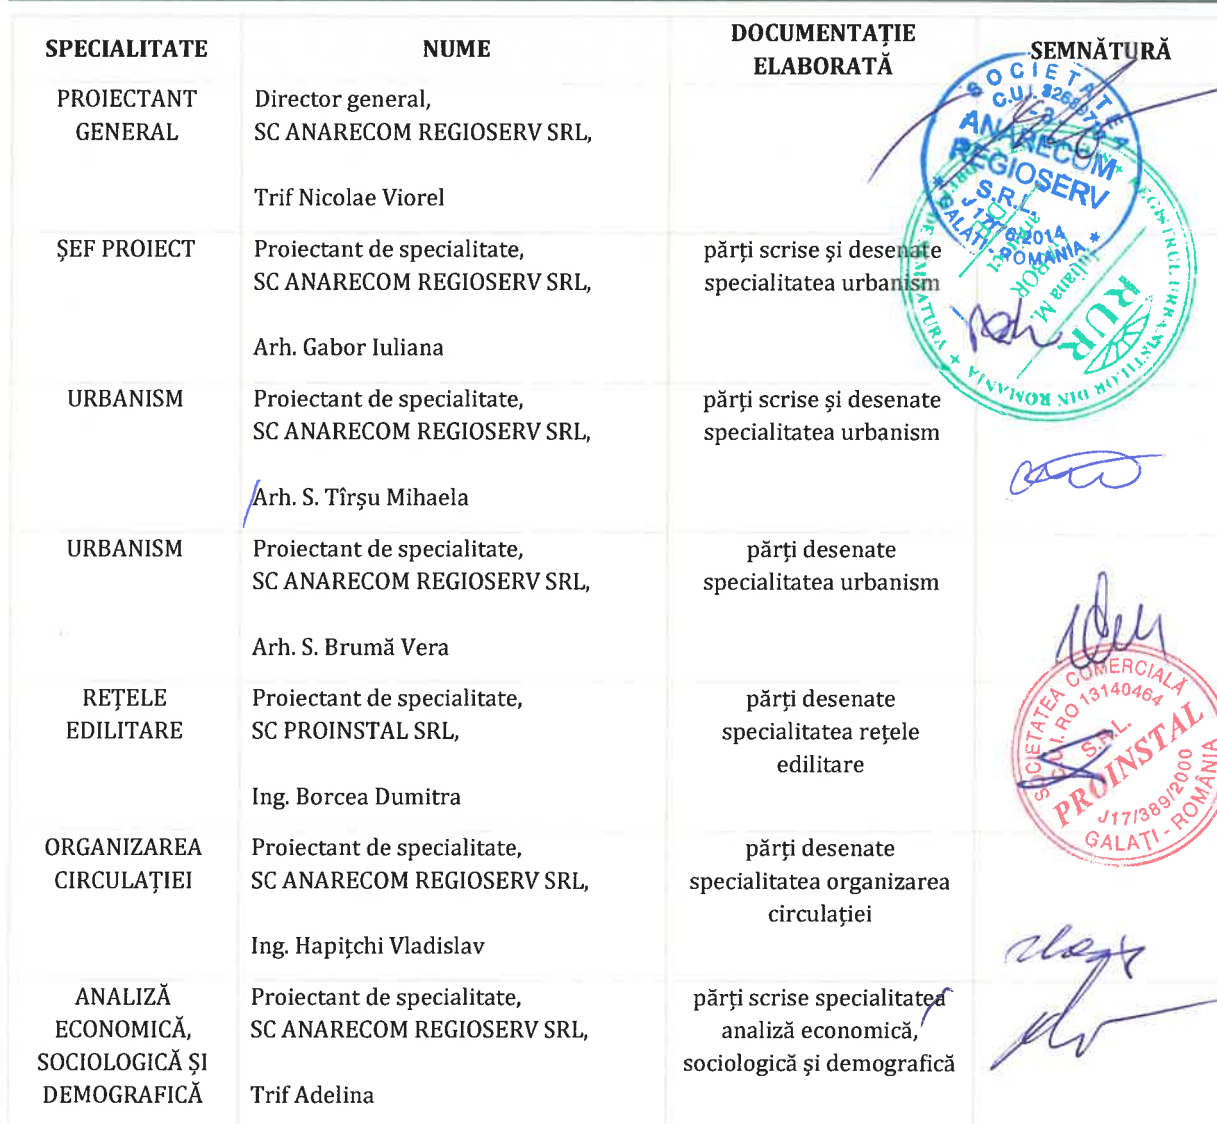 SPECIALITATE NUME DOCUMENTAȚIE ELABORATĂ SEMNĂTURĂ
PROIECTANT GENERAL
Director general,
SC ANARECOM REGIOSERV SRL,
Trif Nicolae Viorel
SOCIETATEA
C.U.I.
ANARECOM
REGIOSERV
S.R.L.
GALAȚI - ROMANIA
ȘEF PROIECT
Proiectant de specialitate,
SC ANARECOM REGIOSERV SRL,
Arh. Gabor Iuliana
părți scrise și desenate
specialitatea urbanism
REGISTRUL URBANIȘTILOR DIN ROMANIA
Iuliana M.
RUR
URBANISM
Proiectant de specialitate,
SC ANARECOM REGIOSERV SRL,
Arh. S. Tîrșu Mihaela
părți scrise și desenate
specialitatea urbanism
URBANISM
Proiectant de specialitate,
SC ANARECOM REGIOSERV SRL,
Arh. S. Brumă Vera
părți desenate
specialitatea urbanism
REȚELE
EDILITARE
Proiectant de specialitate,
SC PROINSTAL SRL,
Ing. Borcea Dumitra
părți desenate
specialitatea rețele
edilitare
SOCIETATEA COMERCIALĂ
C.U.I. RO 13140464
S.R.L.
PROINSTAL
J17/389/2000
GALAȚI - ROMÂNIA
ORGANIZAREA
CIRCULAȚIEI
Proiectant de specialitate,
SC ANARECOM REGIOSERV SRL,
Ing. Hapițchi Vladislav
părți desenate
specialitatea organizarea
circulației
ANALIZĂ
ECONOMICĂ,
SOCIOLOGICĂ ȘI
DEMOGRAFICĂ
Proiectant de specialitate,
SC ANARECOM REGIOSERV SRL,
Trif Adelina
părți scrise specialitatea
analiză economică,
sociologică și demografică